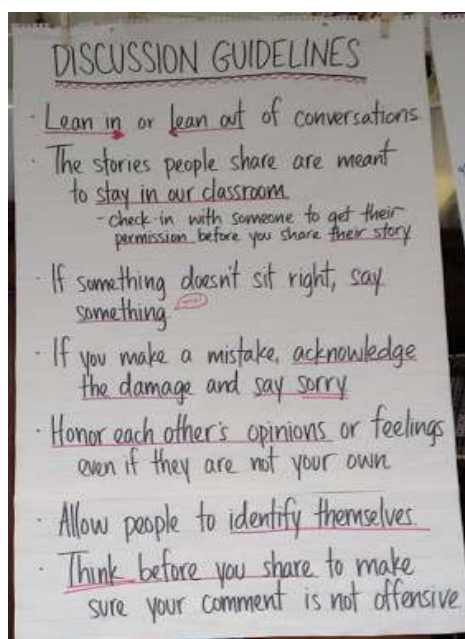 DISCUSSION GUIDELINES
· Lean in or lean out of conversations
· The stories people share are meant
to stay in our classroom
- check in with someone to get their
permission before you share their story
· If something doesn't sit right, say
something
· If you make a mistake, acknowledge
the damage and say sorry
· Honor each other's opinions or feelings
even if they are not your own
· Allow people to identify themselves.
· Think before you share to make
sure your comment is not offensive